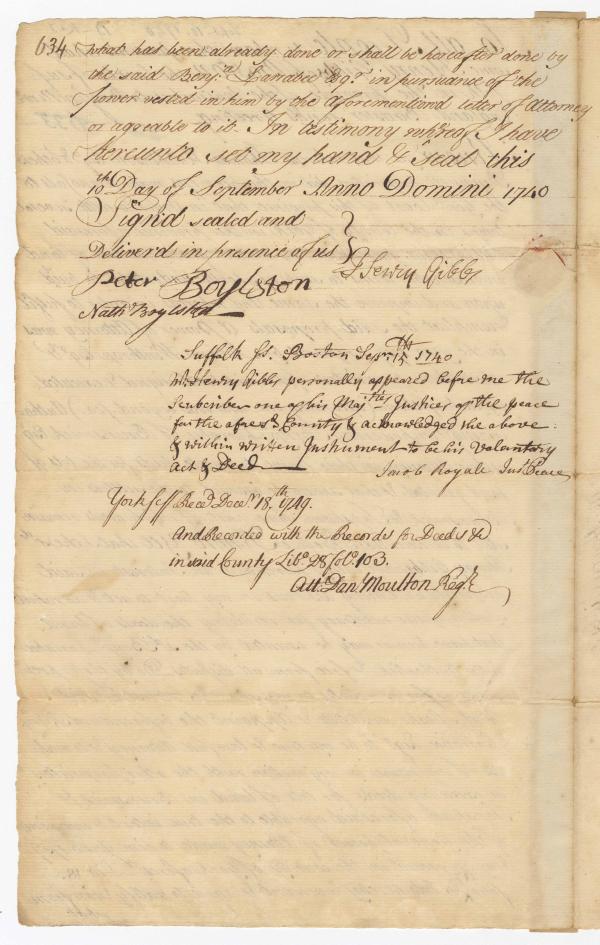 634
what has been already done or shall be hereafter done by
the said Benj.ⁿ Larrabe Esq.r in pursuance of the
power vested in him by the aforementioned letter of attorney
or agreable to it. In testimony whereof I have
hereunto set my hand & seal this
10.th Day of September Anno Domini 1740
Sign'd sealed and
Deliver'd in presence of us } Henry Gibbs
Peter Boylston
Nath.l Boylston
Suffolk ss. Boston Sep.r 15.th 1740
M.r Henry Gibbs personally appeared before me the
Subscriber one of his Maj.ties Justices of the peace
for the afores.d County & acknowledged the above
& within written Instrument to be his Voluntary
Act & Deed Jacob Royall Just. Peace
York ss Rec.d Dece.r 18.th 1749.
And Recorded with the Records for Deeds &c
in said County Lib.o 28 fol.o 103.
Att.r Dan.l Moulton Reg.r